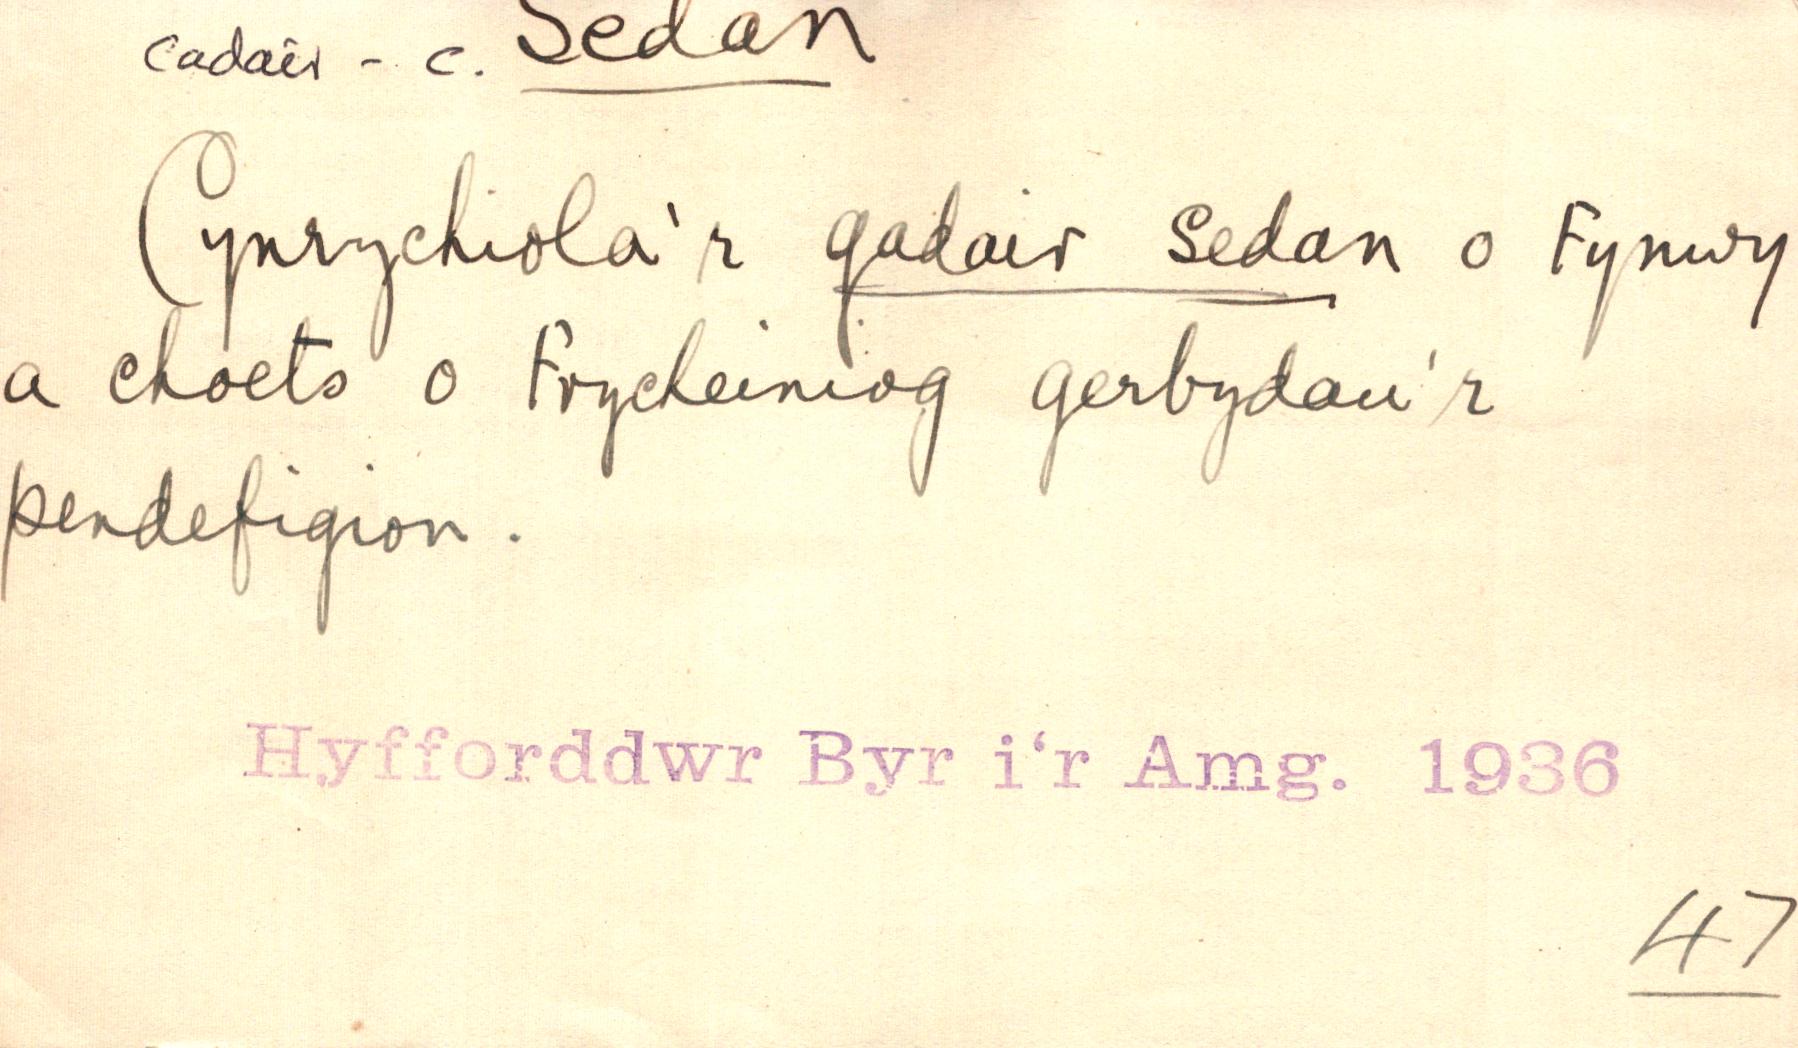 cadair - c. Sedan
Cynrychiola'r gadair Sedan o Fynwy
a choets o Frycheiniog gerbydau'r
pendefigion.
Hyfforddwr Byr i'r Amg. 1936
47